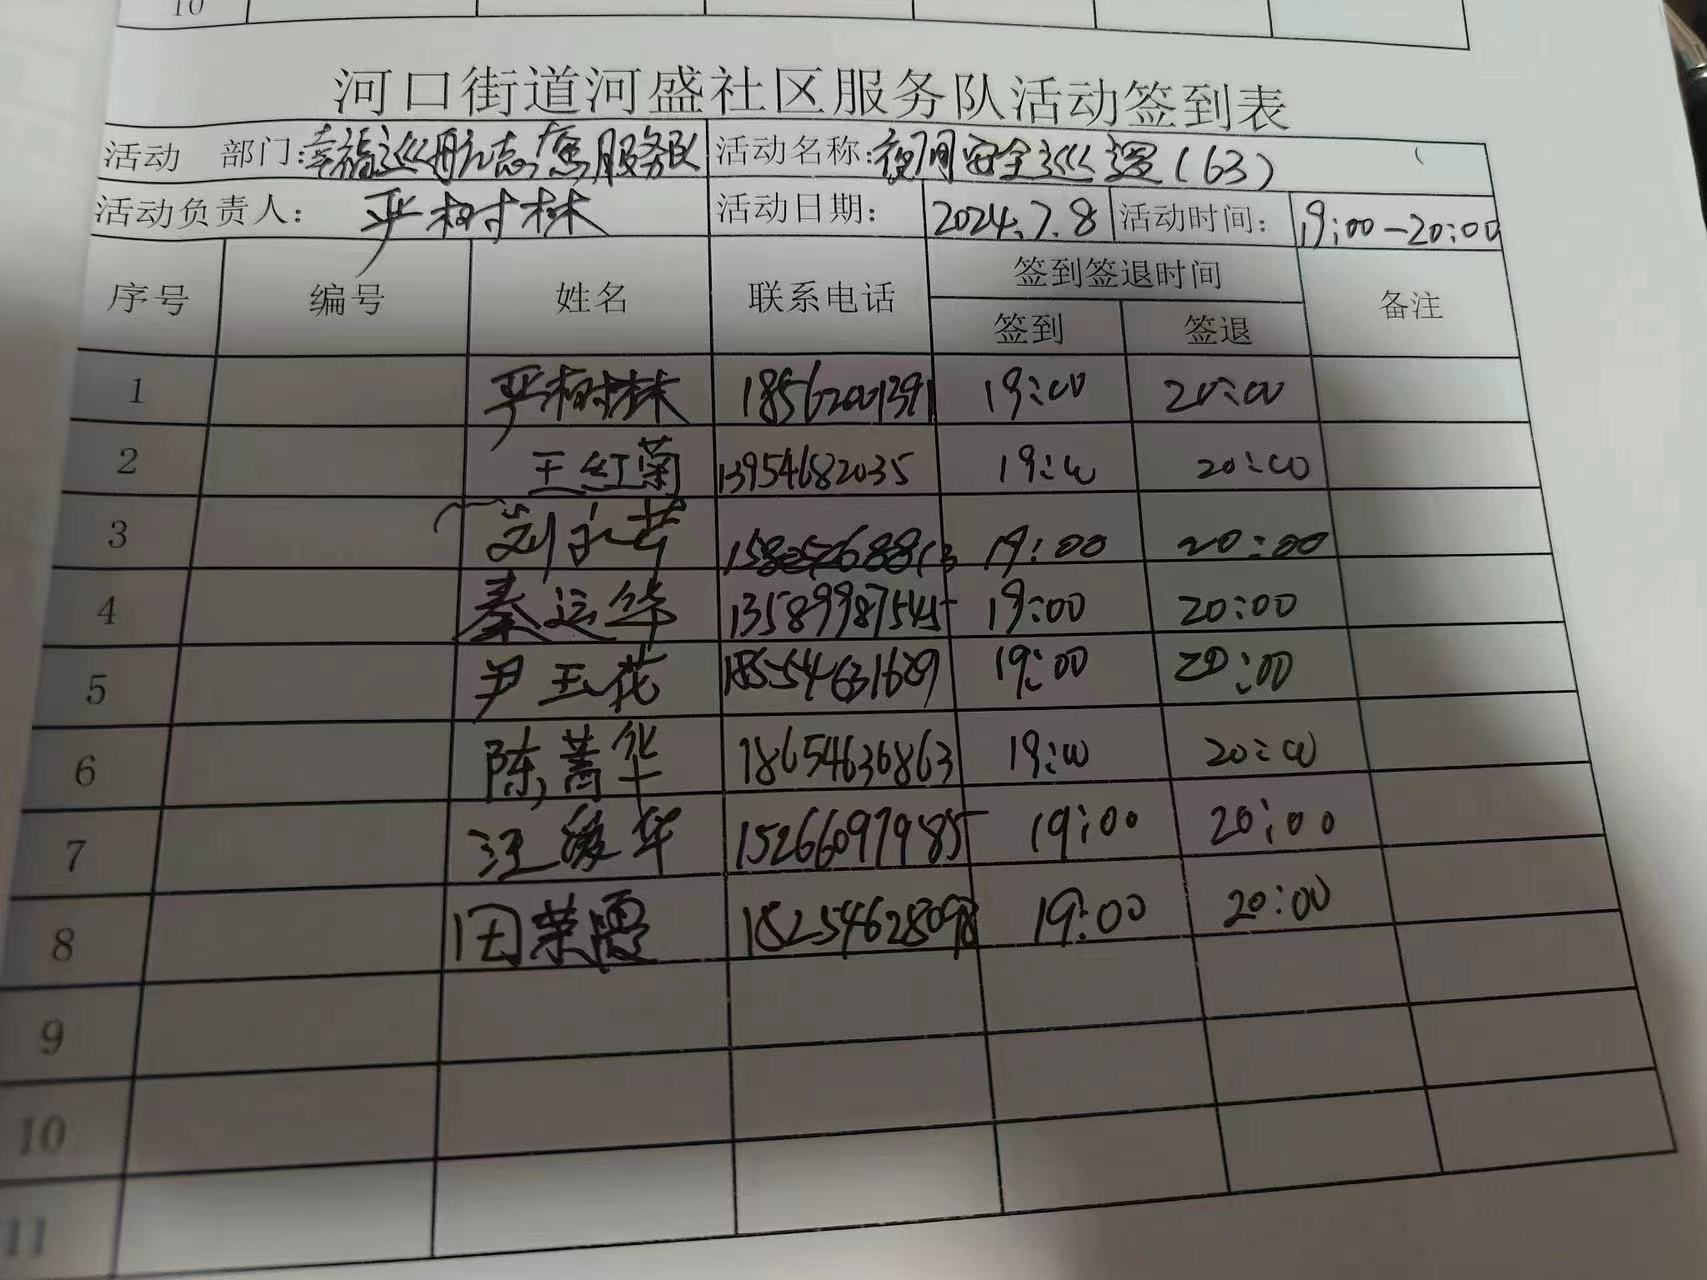 10
河口街道河盛社区服务队活动签到表
活动 部门:幸福巡航志愿服务队 活动名称:夜间安全巡逻(63)
活动负责人: 严树林 活动日期: 2024.7.8 活动时间: 19:00-20:00
序号 编号 姓名 联系电话 签到签退时间 备注
签到 签退
1 严树林 18562001391 19:00 20:00
2 王红菊 13954682035 19:00 20:00
3 19:00 20:00
4 秦运华 13589987545 19:00 20:00
5 尹玉花 18554631629 19:00 20:00
6 陈菁华 18654636863 19:00 20:00
7 汪爱华 15266097985 19:00 20:00
8 田荣霞 18254628098 19:00 20:00
9
10
11